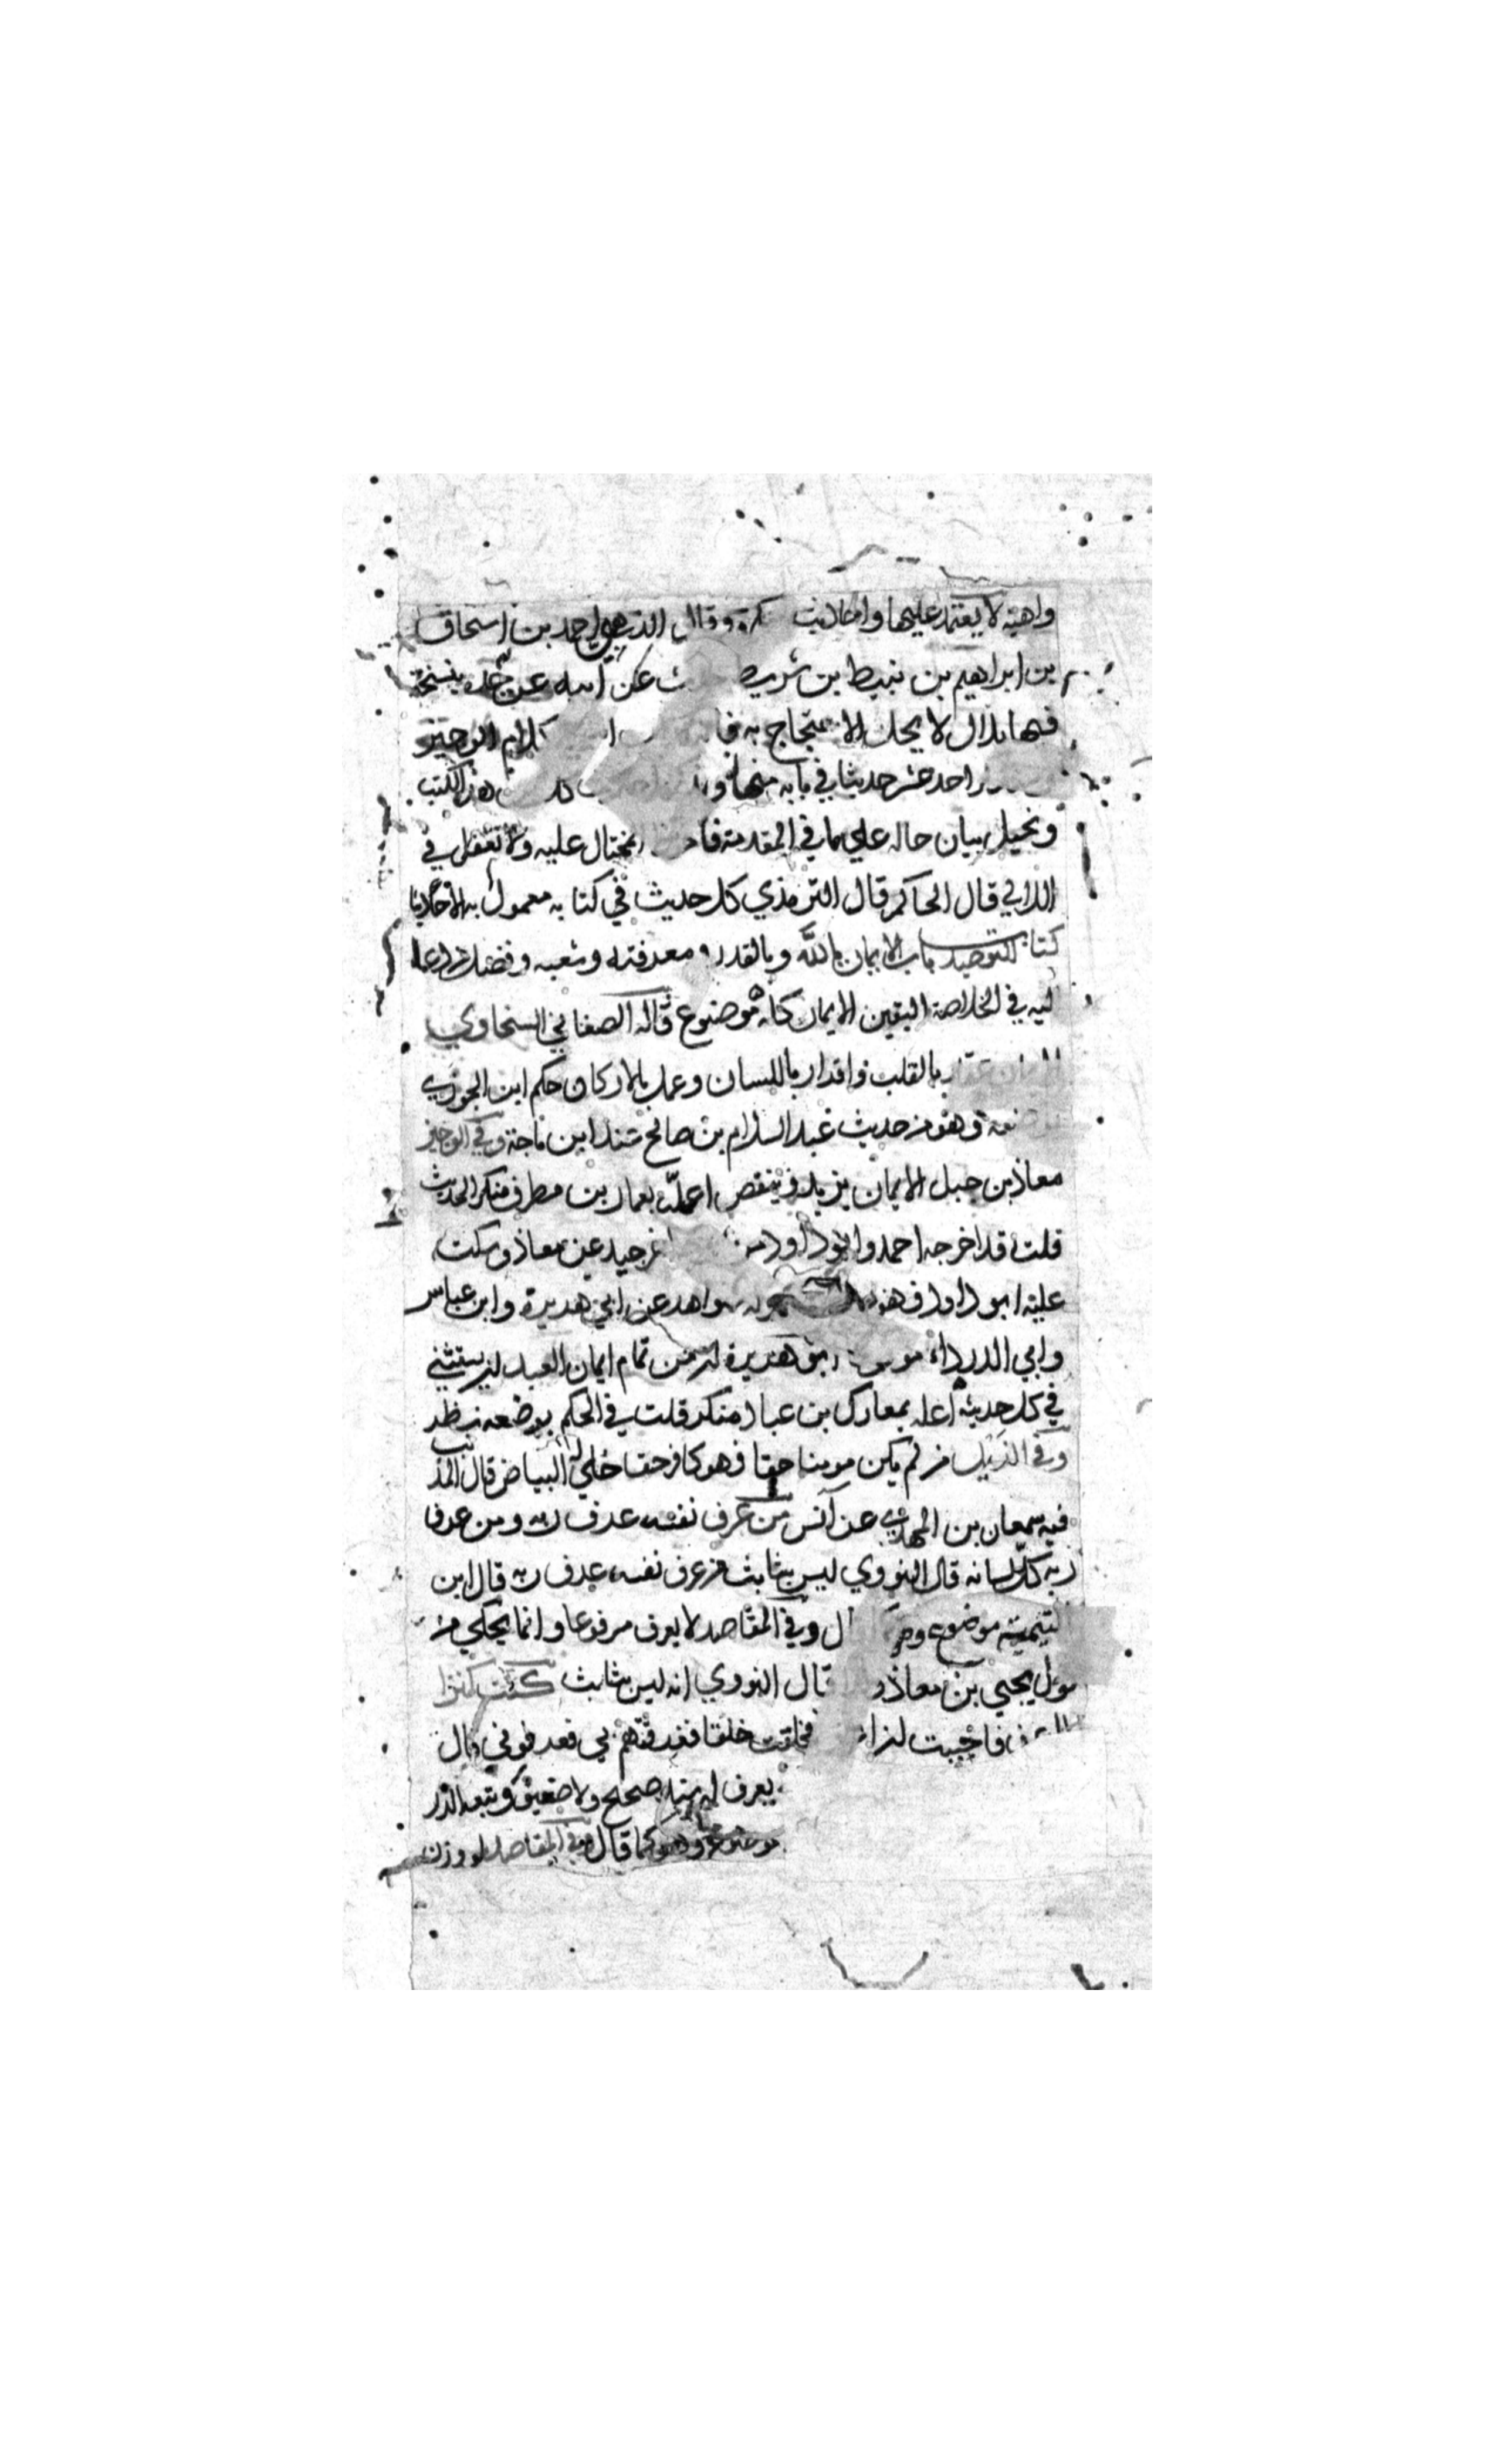 واهية لا يعتمد عليها واحاديث منكرة وقال الذهبي احمد بن اسحاق
بن ابراهيم بن نبيط بن شريط حدث عن ابيه عن جده بنسخة
فيها بلال لا يحل الاحتجاج به كلام الوجيز
احد عشر حديثا في بابه منها هذه الكتب
ونحيل بيان حاله علي ما في المقدمة المحتال عليه ولا تغفل في
اللالي قال الحاكم قال الترمذي كل حديث في كتابه معمول به الاحاديثا
كتاب التوحيد باب الايمان بالله وبالقدر ومعرفته وشعبه وفضل
ليه في الخلاصة اليقين الايمان كله موضوع قاله الصغاني السخاوي
بالقلب واقرار باللسان وعمل بالاركان حكم ابن الجوزي
وهو من حديث عبد السلام بن صالح عند ابن ماجة وفي الوجيز
معاذ بن جبل الايمان يزيد وينقص اعله بعمار بن مطرف منكر الحديث
قلت قد اخرجه احمد وابو داود جيد عن معاذ وسكت
عليه ابو داود فهو شواهد عن ابي هريرة وابن عباس
وابي الدرداء ابو هريرة ان من تمام ايمان العبد ان يستثني
في كل حديثه اعله بمعارك بن عباد منكر قلت في الحكم بوضعه نظر
وفي الذيل من لم يكن مومنا حقا فهو كافر حقا خلي له البياض قال المذنب
فيه سمعان بن المهدي عن انس من عرف نفسه عرف ربه ومن عرف
ربه كل لسانه قال النووي ليس بثابت من عرف نفسه عرف ربه قال ابن
التيمية موضوع وهو كما قال وفي المقاصد لا يعرف مرفوعا وانما يحكي من
قول يحيي بن معاذ قال النووي انه ليس بثابت كنت كنزا
فاحببت ان اعرف فخلقت خلقا فعرفتهم بي فعرفوني قال
يعرف له سند صحيح ولا ضعيف وتبعه الزر
موضوع وهو كما قال وفي المقاصد لو وزن